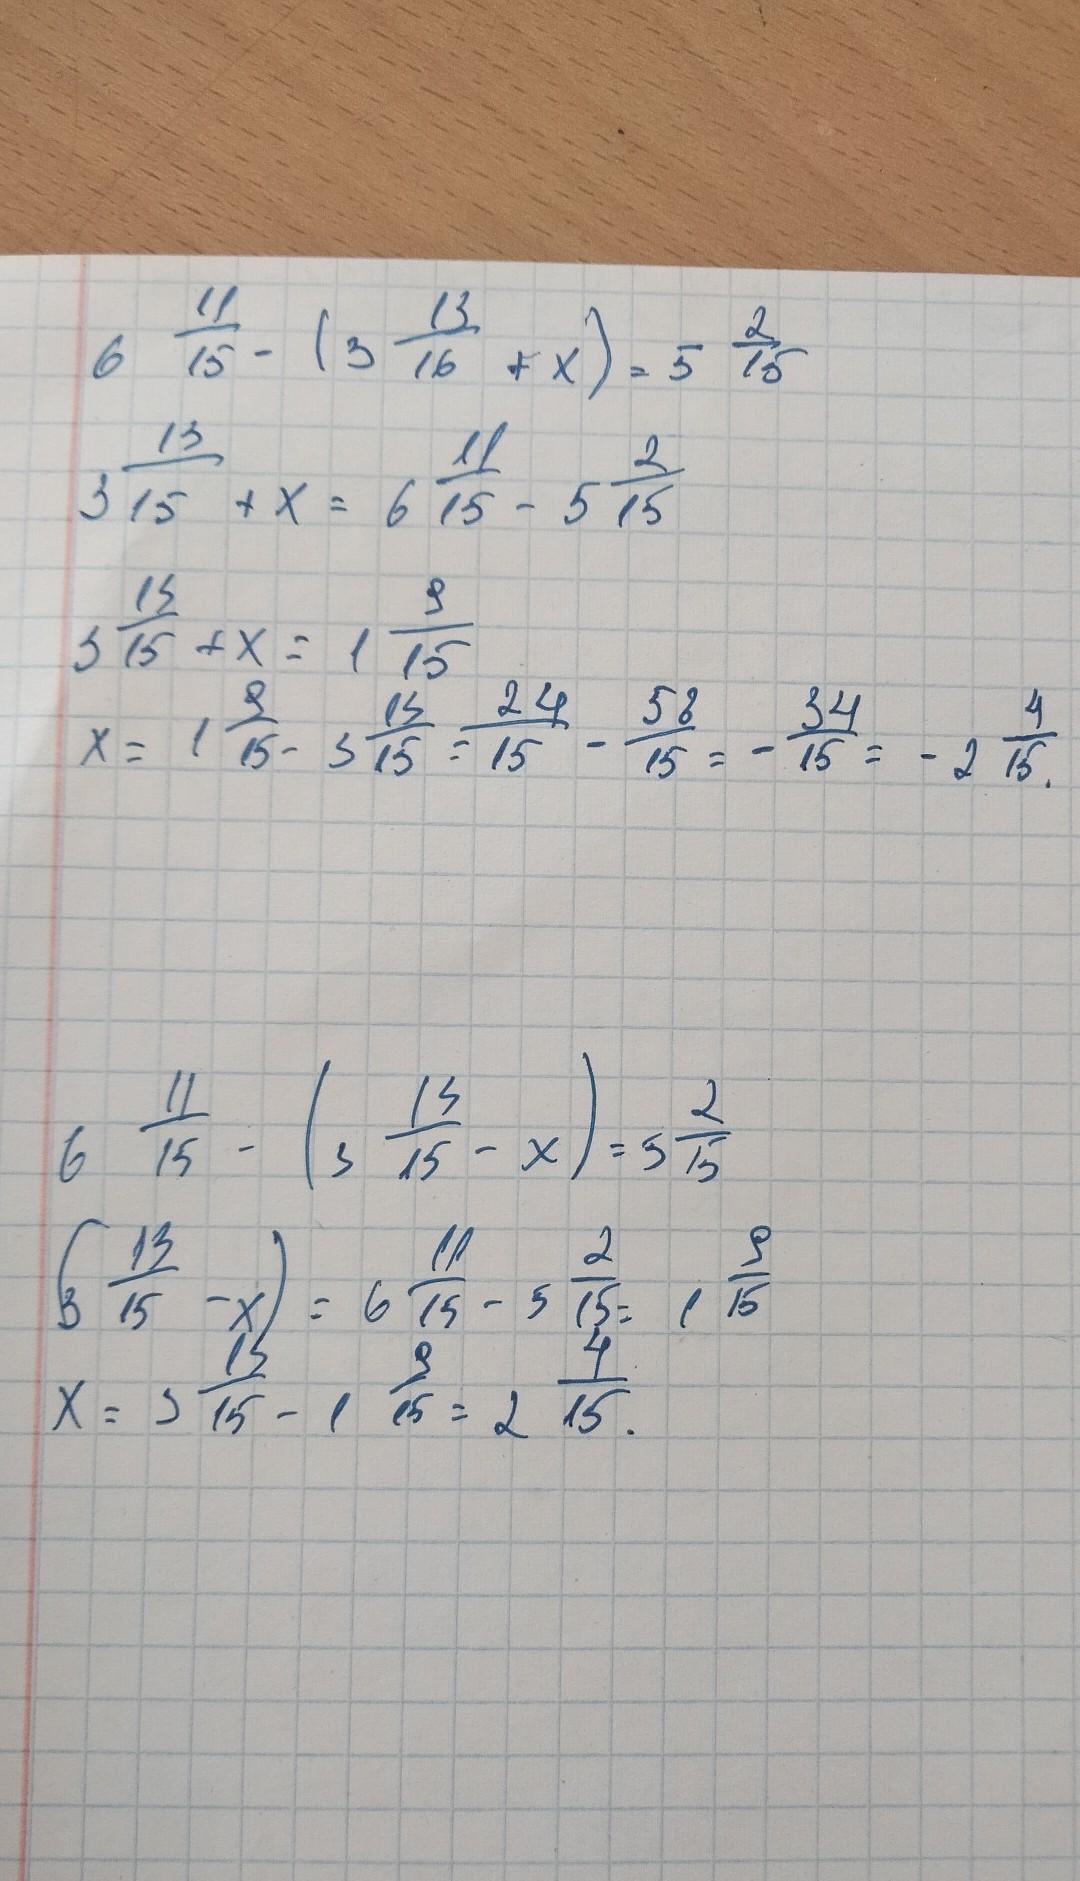 6 11/15 - (3 13/16 + x) = 5 2/15
3 13/15 + x = 6 11/15 - 5 2/15
3 13/15 + x = 1 9/15
x = 1 9/15 - 3 13/15 = 24/15 - 58/15 = - 34/15 = - 2 4/15.
6 11/15 - (3 13/15 - x) = 5 2/15
(3 13/15 - x) = 6 11/15 - 5 2/15 = 1 9/15
x = 3 13/15 - 1 9/15 = 2 4/15.